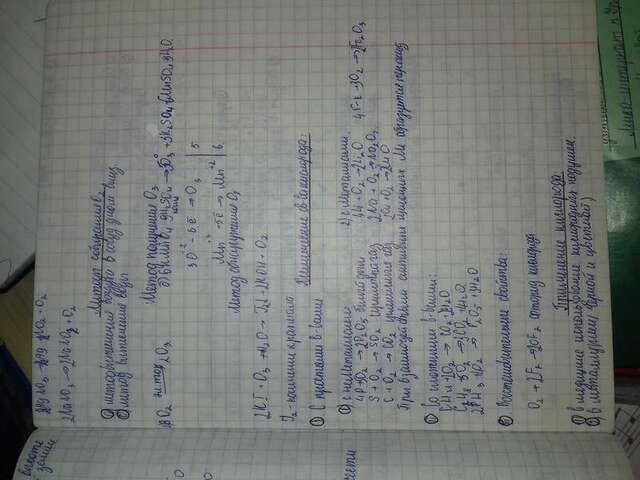 высоте
земли
2AgNO3 → 2Ag + 2NO2 + O2
2NaNO3 → 2NaNO2 + O2
Методы собирания O2
① метод вытеснения воздуха в сосуд дном вниз.
② метод вытеснения воды
Метод получения O3
3O2 эл.ток → 2O3
б) 6KMnO4 + 9H2SO4 → 5O3 + 3K2SO4 + 6MnSO4 9H2O
конц
3O-2 - 6e → O3 | 5
Mn+7 +5e → Mn+2 | 6
Метод обнаружения O3
2KI + O3 + H2O → I2↓ + 2KOH + O2
I2 - посинение крахмала
Химические св-ва кислорода:
① С простыми в-вами
① с неметаллами
2) с металлами.
4P + 5O2 → 2P2O5 белый дым
4Li + O2 → 2Li2O
4Fe + 3O2 → 2Fe2O3
S + O2 → SO2 сернистый газ
2Na + O2 → Na2O2
C + O2 → CO2 углекислый газ
2Cu + O2 → 2CuO
При взаимодействии активных щелочных Me образуется пероксид
② Со сложными в-вами:
CH4 + 2O2 → CO2 + 2H2O
C3H8 + 5O2 → 3CO2 + 4H2O
2PH3 + 4O2 → P2O5 + 3H2O
Восстановительные свойства:
O2 + 2F2 → 2OF2 фторид кислорода
Применение кислорода
1) в медицине использование кислородных подушек.
2) в металлургии (черной и цветной)
Лицей-интернат п. Ур